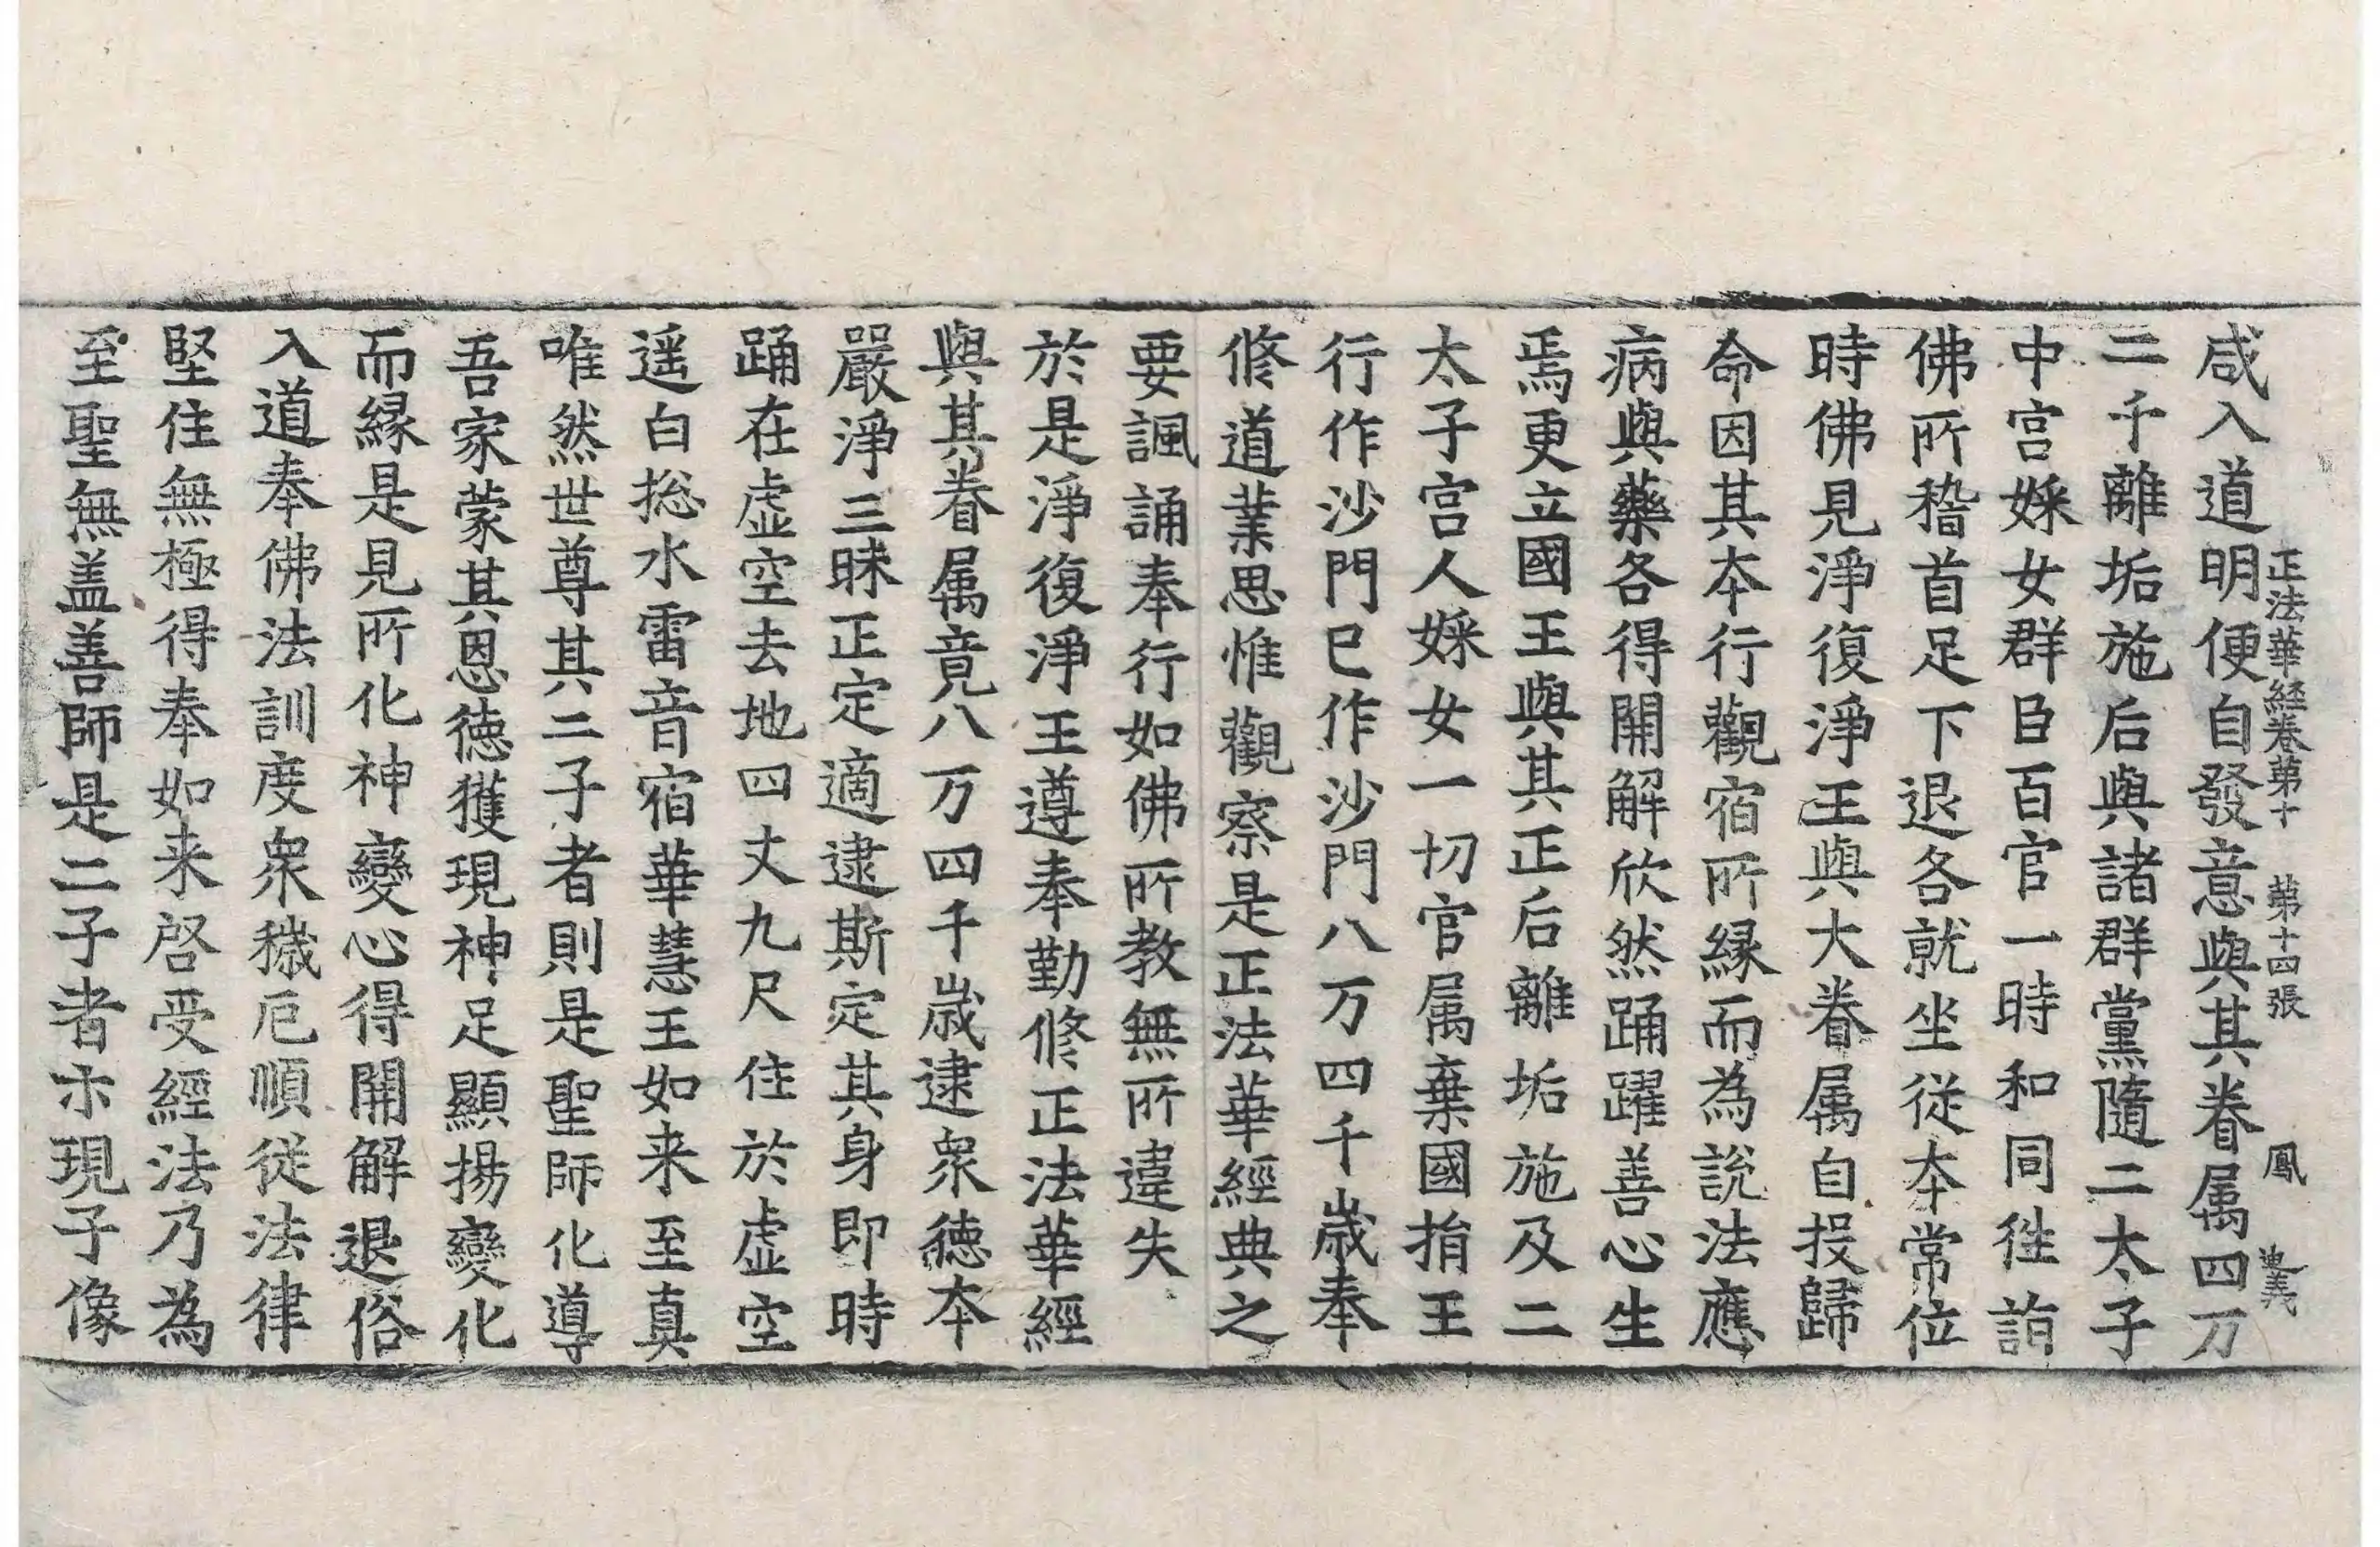 正法華経卷第十　第十四張　鳳　迪義
咸入道明便自發意與其眷属四万
二千離垢施后與諸群黨隨二太子
中宮婇女群臣百官一時和同徃詣
佛所稽首足下退各就坐従夲常位
時佛見淨復淨王與大眷属自投歸
命因其夲行觀宿所縁而為說法應
病與藥各得開解欣然踊躍善心生
焉更立國王與其正后離垢施及二
太子宮人婇女一切官属棄國捐王
行作沙門已作沙門八万四千歲奉
修道業思惟觀察是正法華經典之
要諷誦奉行如佛所教無所違失
於是淨復淨王遵奉勤修正法華經
與其眷属竟八万四千歲逮衆徳夲
嚴淨三昧正定適逮斯定其身即時
踊在虚空去地四丈九尺住於虚空
遥白揔水雷音宿華慧王如来至真
唯然世尊其二子者則是聖師化導
吾家蒙其恩徳獲現神足顯揚變化
而縁是見所化神變心得開解退俗
入道奉佛法訓度衆穢厄順従法律
堅住無極得奉如来啓受經法乃為
至聖無盖善師是二子者示現子像